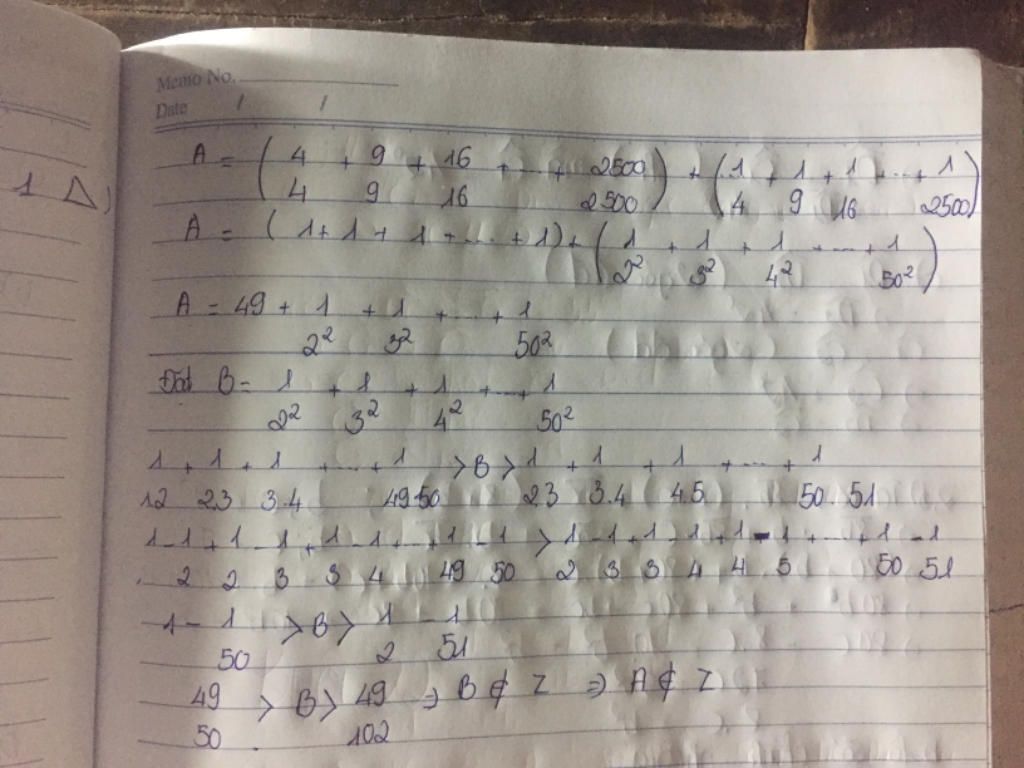 Memo No.
Date / /
1 Δ)
A = (4/4 + 9/9 + 16/16 + ... + 2500/2500) + (1/4 + 1/9 + 1/16 + ... + 1/2500)
A = (1 + 1 + 1 + ... + 1) + (1/2² + 1/3² + 1/4² + ... + 1/50²)
A = 49 + 1/2² + 1/3² + ... + 1/50²
Đặt B = 1/2² + 1/3² + 1/4² + ... + 1/50²
1/1.2 + 1/2.3 + 1/3.4 + ... + 1/49.50 > B > 1/2.3 + 1/3.4 + 1/4.5 + ... + 1/50.51
1 - 1/2 + 1/2 - 1/3 + 1/3 - 1/4 + ... + 1/49 - 1/50 > 1/2 - 1/3 + 1/3 - 1/4 + 1/4 - 1/5 + ... + 1/50 - 1/51
1 - 1/50 > B > 1/2 - 1/51
49/50 > B > 49/102 ⇒ B ∉ Z ⇒ A ∉ Z